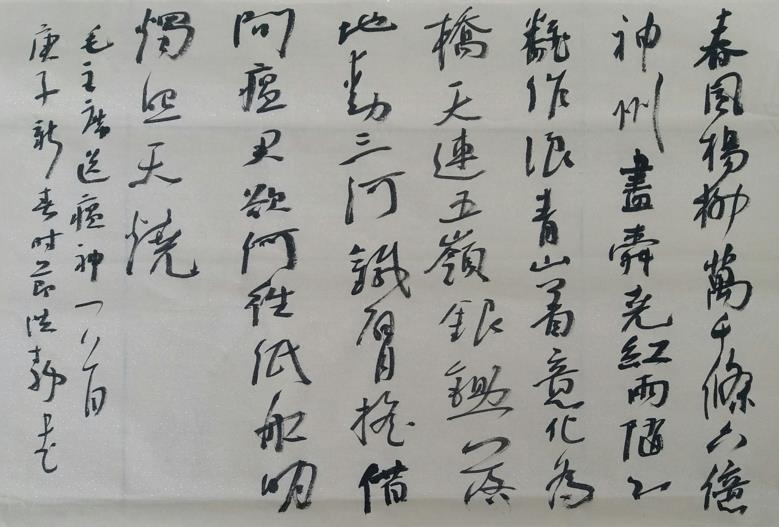 春風楊柳萬千條六億
神州盡舜堯紅雨隨心
翻作浪青山着意化為
橋天連五嶺銀鋤落
地動三河鐵臂搖借
問瘟君欲何往紙船明
燭照天燒
毛主席送瘟神一首
庚子新春時節書